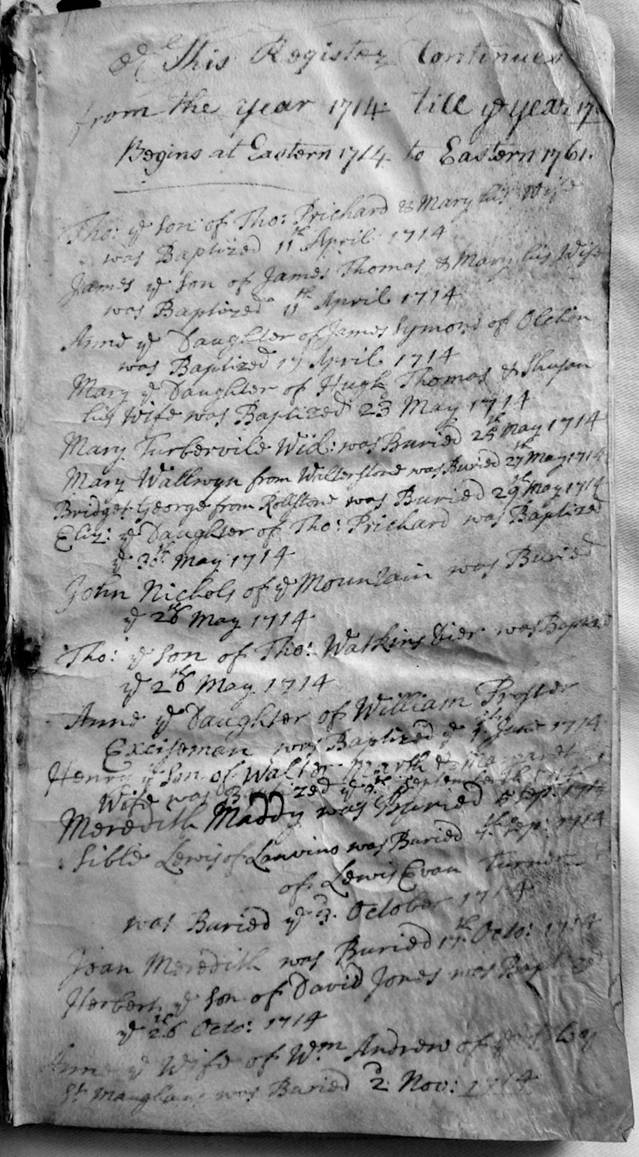 This Register Continues
from the year 1714 till ye year 17
Begins at Eastern 1714 to Eastern 1761.
Tho: ye Son of Tho: Prichard & Mary his Wife
was Baptized 11th April 1714
James ye Son of James Thomas & Mary his Wife
was Baptized 11th April 1714
Anne ye Daughter of James Symons of
was Baptized 17 April 1714
Mary ye Daughter of Hugh Thomas &
his Wife was Baptized 23 May 1714
Mary Turbervile Wid: was Buried May 1714
Mary Wallwyn from Walterstone was Buried 27th May 1714
Bridget George from Rollstone was Buried 29th May 1714
Eliz: ye Daughter of Tho: Prichard was Baptized
ye May 1714
John Nichols of ye Mountain was Buried
ye 26 May 1714
Tho: ye Son of Tho: Watkins was Baptized
ye 26 May 1714
Anne ye Daughter of William Prosser
Exciseman was Baptized ye June 1714
Henry ye Son of Walter & Margaret
Wife was Baptized ye September 1714
Meredith Maddy was Buried Sep: 1714
Sible Lewis of was Buried Sep: 1714
of Lewis Evan Turner
was Buried ye 3. October 1714
Joan Meredith was Buried 17th Octo: 1714
Herbert ye Son of David Jones was Baptized
ye 26 Octo: 1714
Anne ye Wife of Wm Andrew of
St was Buried 2 Nov: 1714